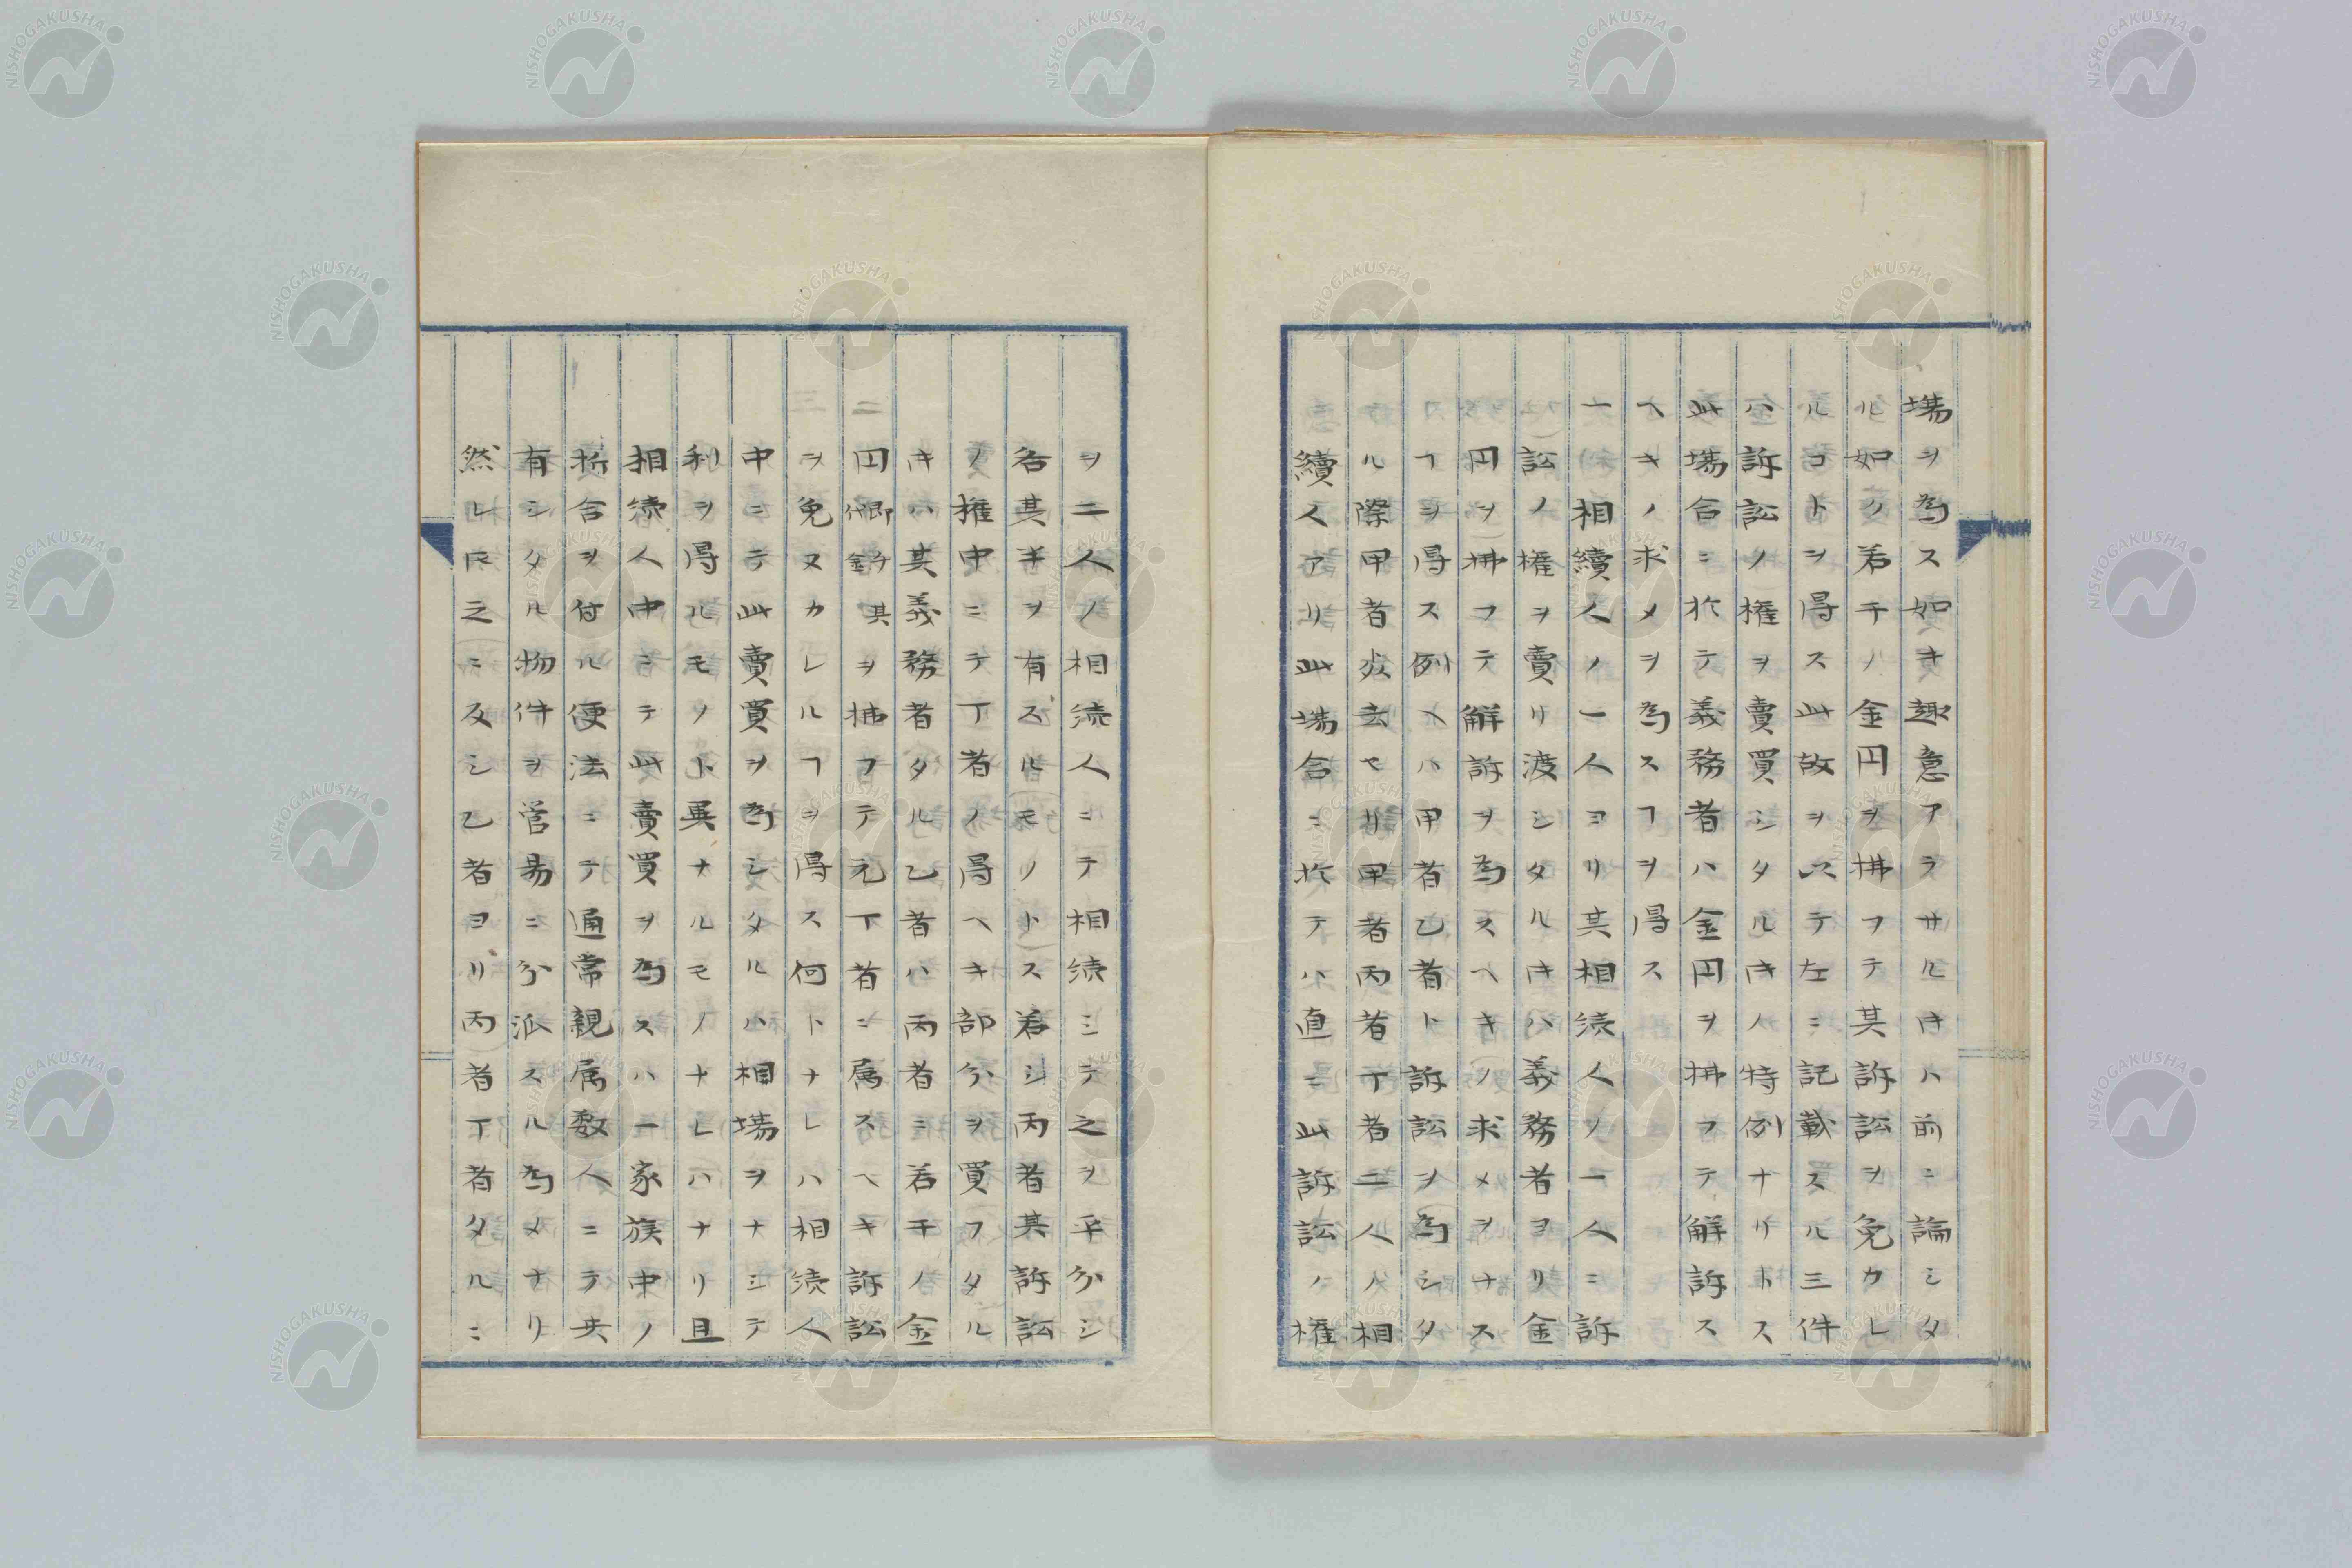 場ヲ為ス如キ趣意アラサルトキハ前ニ論シタ
ル如ク若干ノ金円ヲ拂フテ其訴訟ヲ免カレ
ルコトヲ得ス此故ヲ以テ左ニ記載スル三件
ハ訴訟ノ権ヲ賣買シタルトキノ特例ナリトス
此場合ニ於テ義務者ハ金円ヲ拂フテ解訴ス
ヘキノ求メヲ為スヿヲ得ス
一相續人ノ一人ヨリ其相続人ノ一人ニ訴
訟ノ権ヲ賣リ渡シタルトキハ義務者ヨリ金
円ヲ拂フテ解訴ヲ為スヘキノ求メヲナス
ヿヲ得ス例ヘハ甲者乙者ト訴訟ヲ為シタ
ル際甲者死去セリ甲者丙者丁者二人ノ相
續人アリ此場合ニ於テハ直ニ此訴訟ノ権
ヲ二人ノ相続人ニテ相続シテ之ヲ平分シ
各其半ヲ有スルモノトス若シ丙者其訴訟
ノ権中ニテ丁者ノ得ヘキ部分ヲ買フタル
トキハ其義務者タル乙者ハ丙者ニ若干ノ金
円即チ其代金ヲ拂フテ元丁者ニ属スヘキ訴訟
ヲ免ヌカレルヿヲ得ス何トナレハ相続人
中ニテ此賣買ヲ為シタルハ相場ヲナシテ
利ヲ得ルモノト異ナルモノナレハナリ且
相続人中ニテ此賣買ヲ為スハ一家族中ノ
折合ヲ付ル便法ニテ通常親属数人ニテ共
有シタル物件ヲ容易ニ分派スル為メナリ
然レ𪜈之ニ反シ乙者ヨリ丙者丁者タルニ